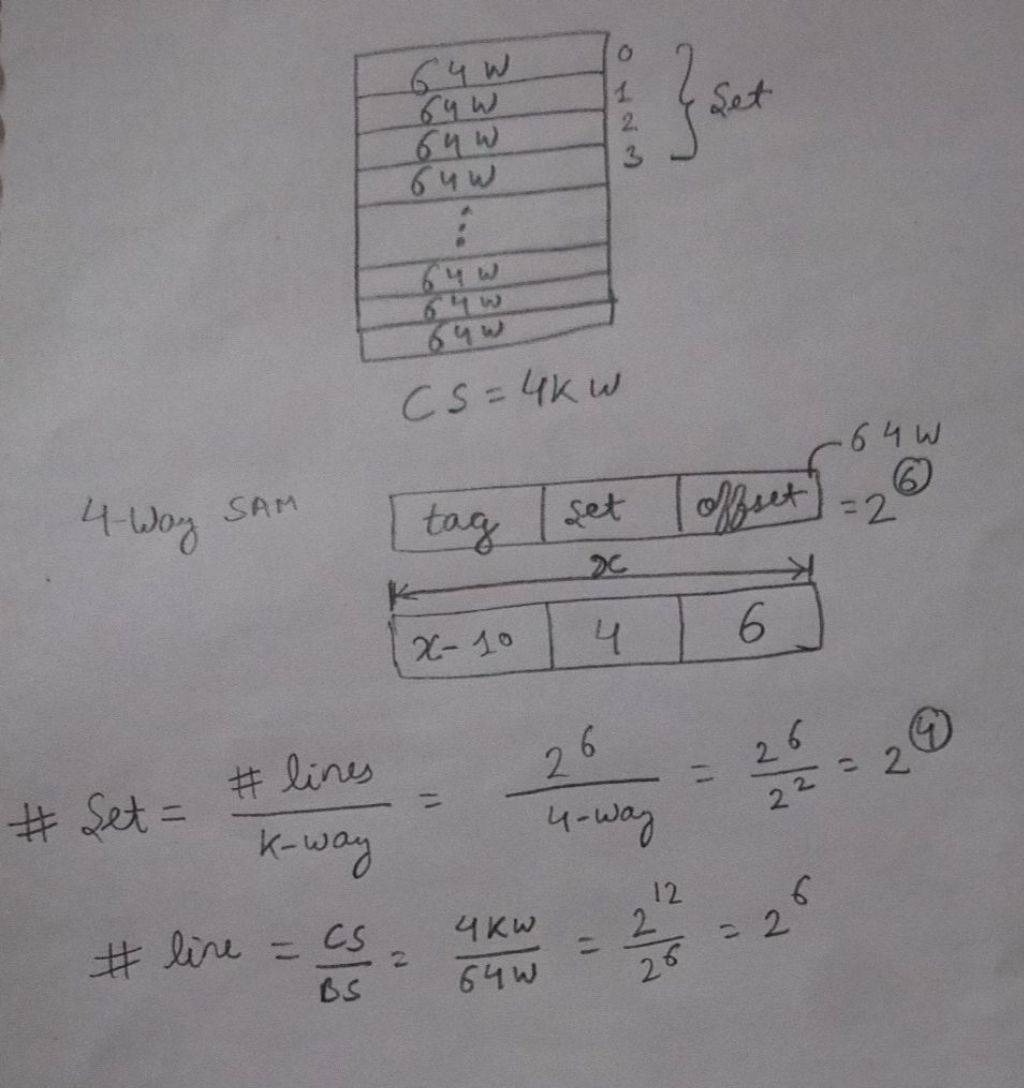 64 W 0
64 W 1 } Set
64 W 2
64 W 3
⋮
64 W
64 W
64 W
CS = 4K W
64 W
4-Way SAM tag set offset = 2^6
x
x-10 4 6
# Set = # lines / K-way = 2^6 / 4-way = 2^6 / 2^2 = 2^4
# line = CS / BS = 4KW / 64W = 2^12 / 2^6 = 2^6